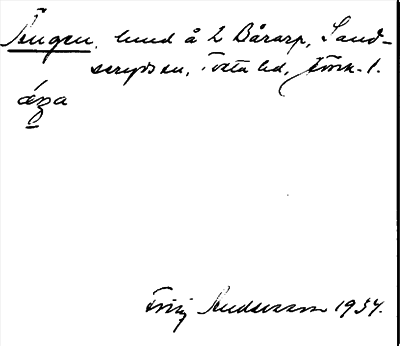 Ängen, lund å 2 Bårarp, Sand-
seryds sn, Tveta hd, Jönk. l.
äŋa
Fritz Andersson 1934.